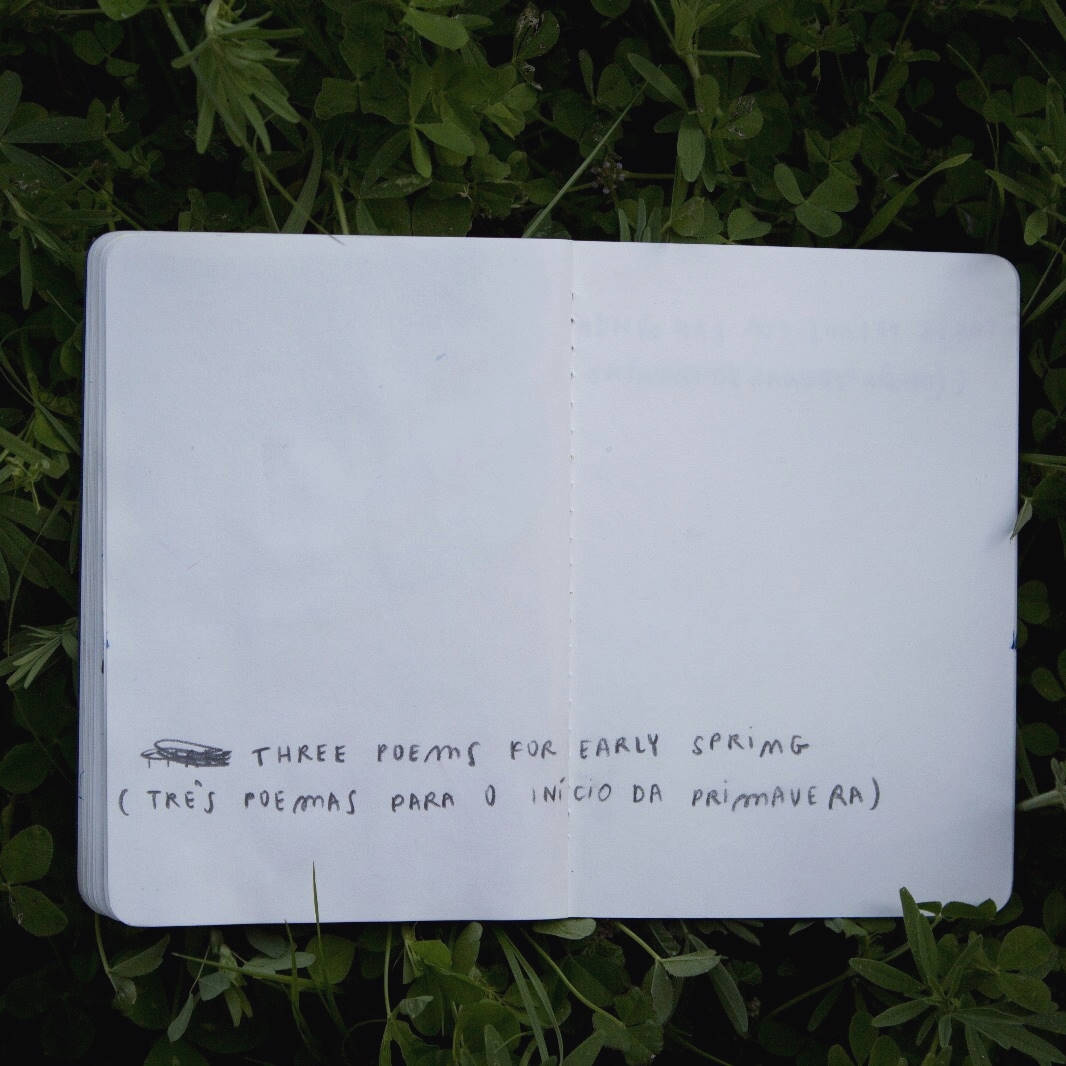 THREE POEMS FOR EARLY SPRING
(TRÊS POEMAS PARA O INÍCIO DA PRIMAVERA)